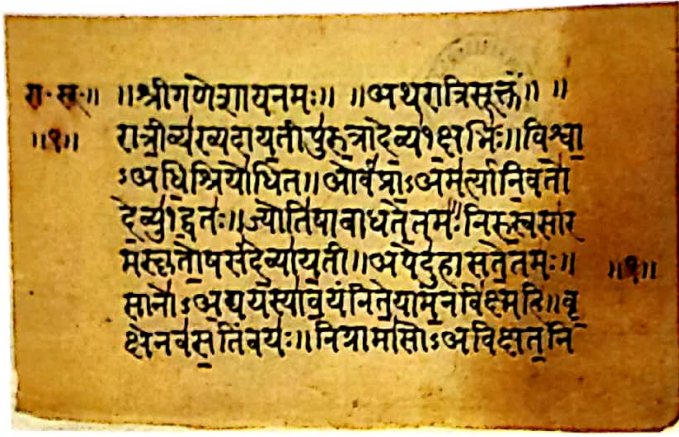 रा॰सू॰॥ ॥श्रीगणेशायनमः॥ ॥अथरात्रिसूक्तं॥ ॥
॥१॥ रात्री॒व्य॑ख्यदाय॒तीपु॑रु॒त्रादे॒व्य१॒॑क्षभिः॑॥विश्वा॒
ऽअधि॒श्रियो॑धित॥ओर्व॑प्रा॒ऽअम॑र्त्यानि॒वतो॑
दे॒व्यु१॒॑द्वतः॑॥ज्योति॑षाबाधते॒तमः॑॥निरु॒स्वसा॑र
मस्कृतो॒षसं॑दे॒व्या॑य॒ती॥अपेदु॑हासते॒तमः॑॥ ॥१॥
सानो॑ऽअ॒द्ययस्या॑व॒यंनिते॒याम॒न्नवि॑क्ष्महि॥वृ॒
क्षेनव॑स॒तिंवयः॑॥निग्रामा॑सोऽअविक्षत॒नि